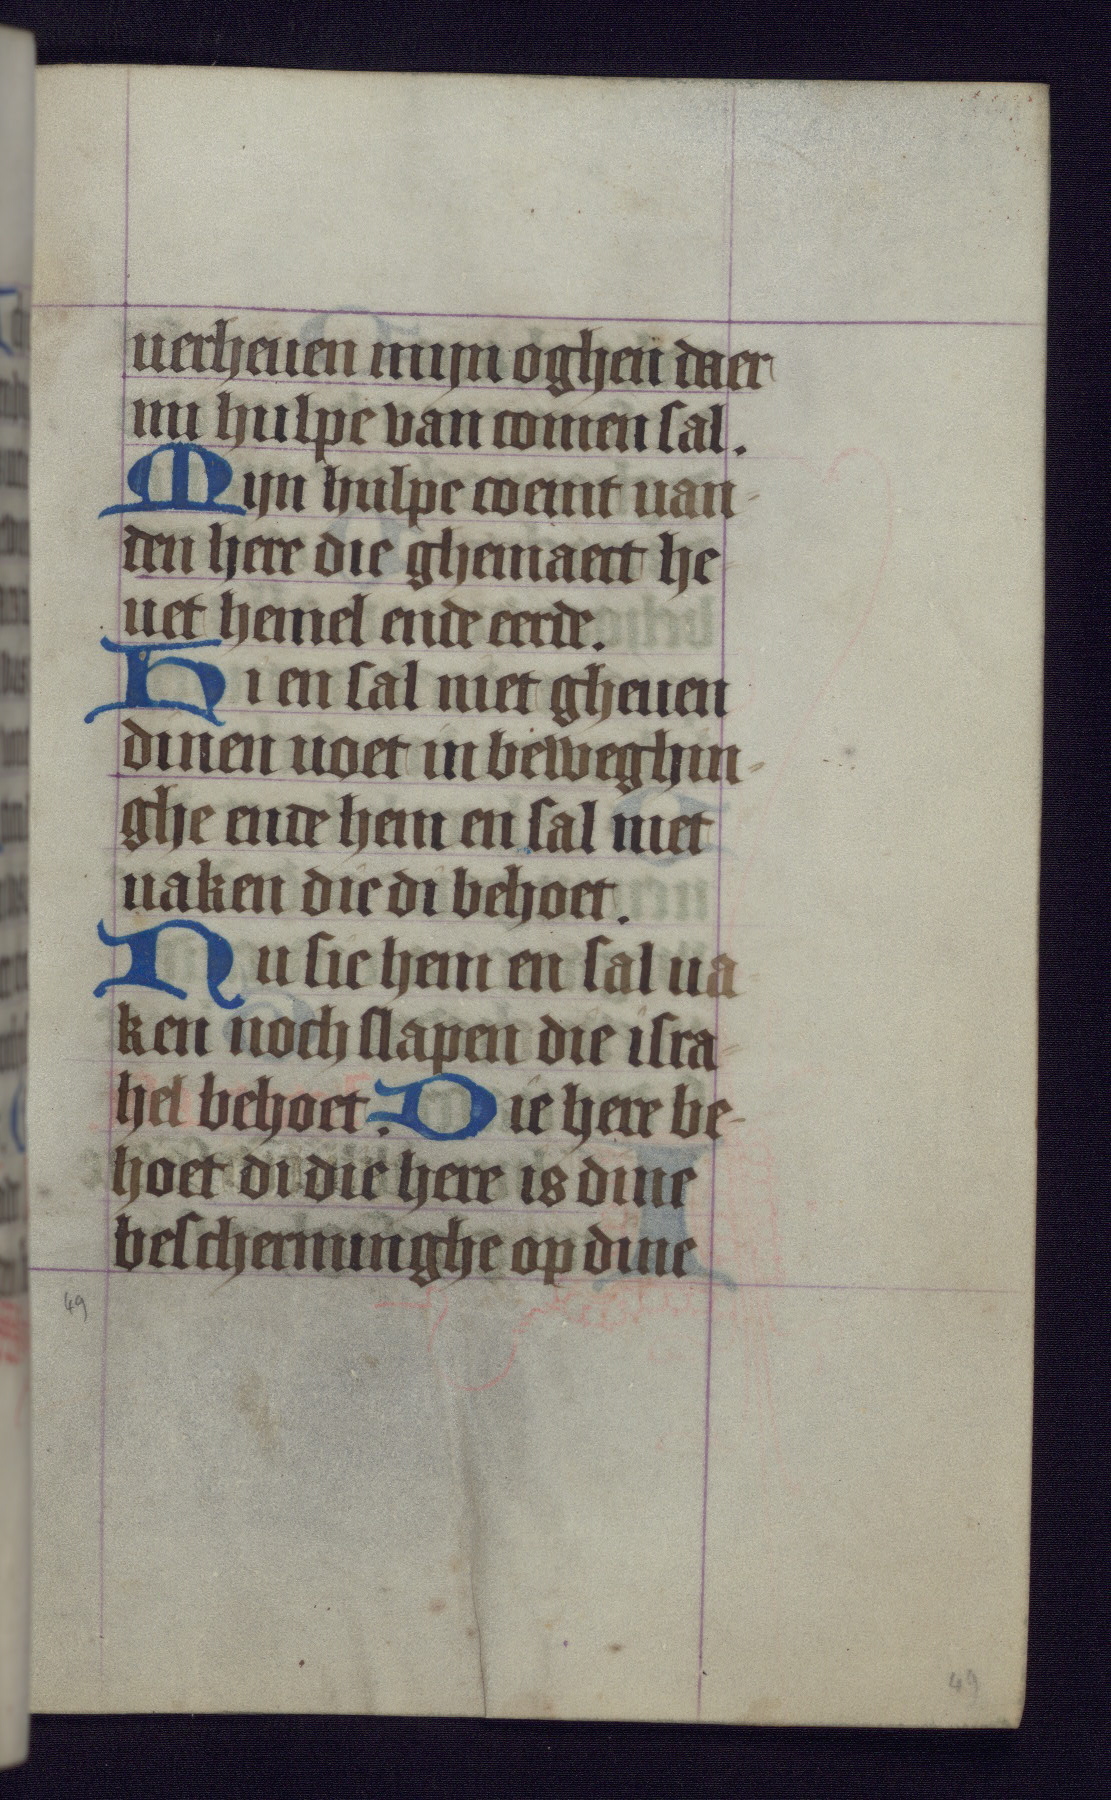 uerheuen mijn oghen daer
mi hulpe van comen sal.
Mijn hulpe coemt uan-
den here die ghemaect he-
uet hemel ende eerde.
Hi en sal niet gheuen
dinen uoet in beweghin-
ghe ende hem en sal niet
uaken die di behoet.
Nu sie hem en sal ua-
ken noch slapen die isra-
hel behoet. Die here be-
hoet di die here is dine
bescherminghe op dine
49
49